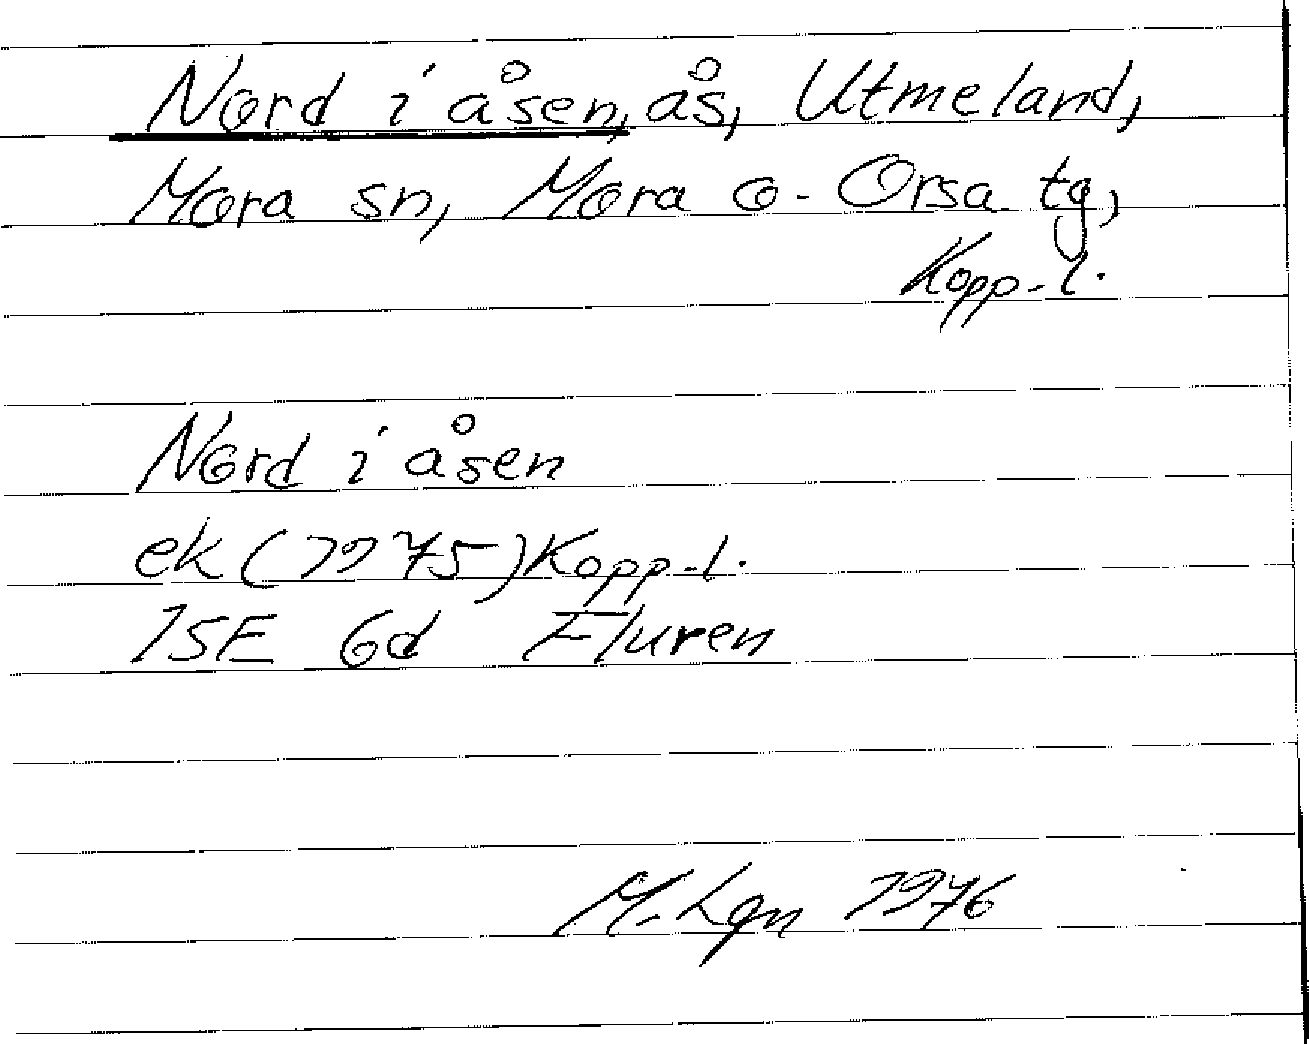 Nord i åsen, ås, Utmeland,
Mora sn, Mora o. Orsa tg,
Kopp.l.
Nord i åsen
ek (1975) Kopp.l.
15E 6d Fluren
M. Lgn 1976